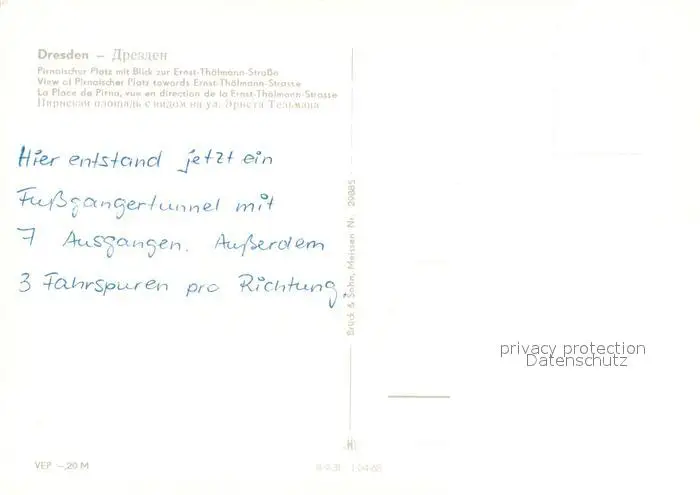 Dresden – Дрезден
Pirnaischer Platz mit Blick zur Ernst-Thälmann-Straße
View of Pirnaischer Platz towards Ernst-Thälmann-Strasse
La Place de Pirna, vue en direction de la Ernst-Thälmann-Strasse
Пирнская площадь с видом на ул. Эрнста Тельмана
Hier entstand jetzt ein
Fußgangertunnel mit
7 Ausgangen. Außerdem
3 Fahrspuren pro Richtung.
Brück & Sohn, Meissen Nr. 29885
privacy protection
Datenschutz
VEP –,20 M